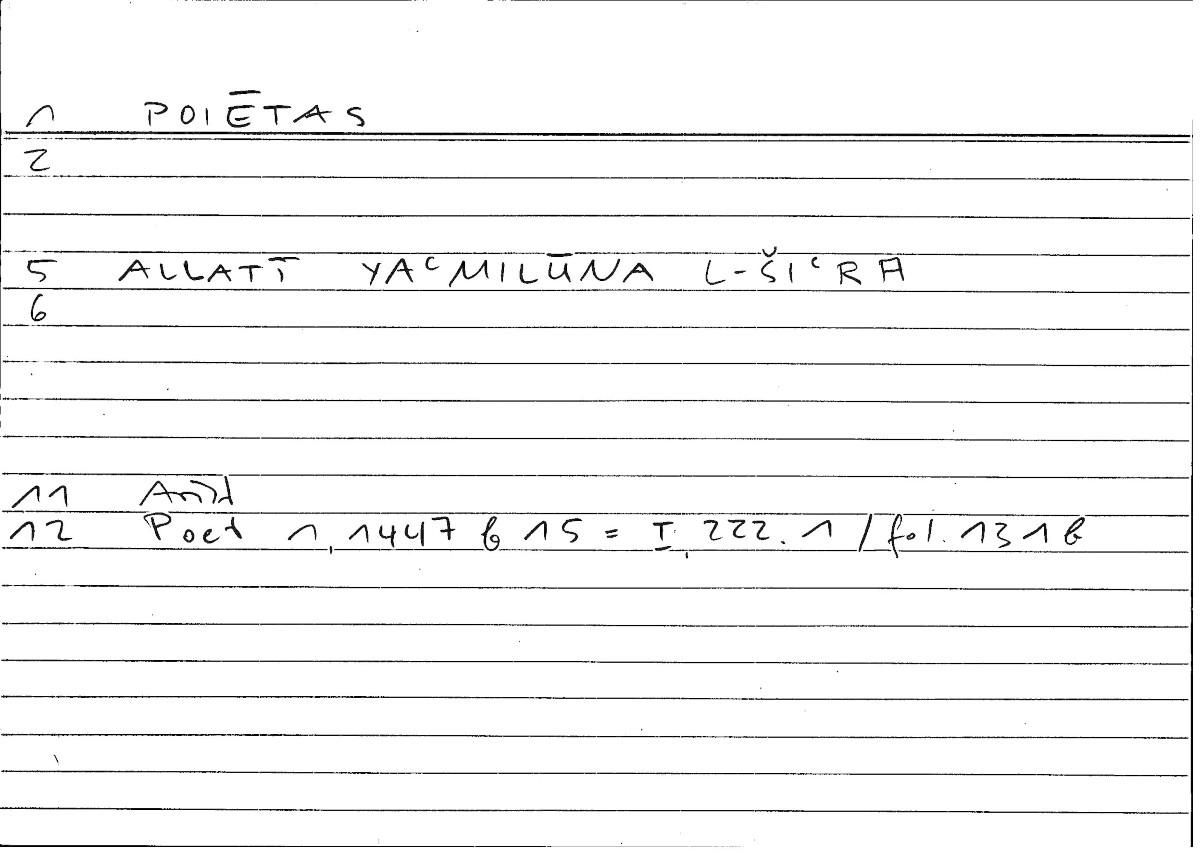 1 POIĒTAS
2
5 ALLATĪ YAʿMILŪNA L-ŠIʿRA
6
11 Arist
12 Poet 1, 1447 b 15 = I, 222. 1 / fol. 131 b